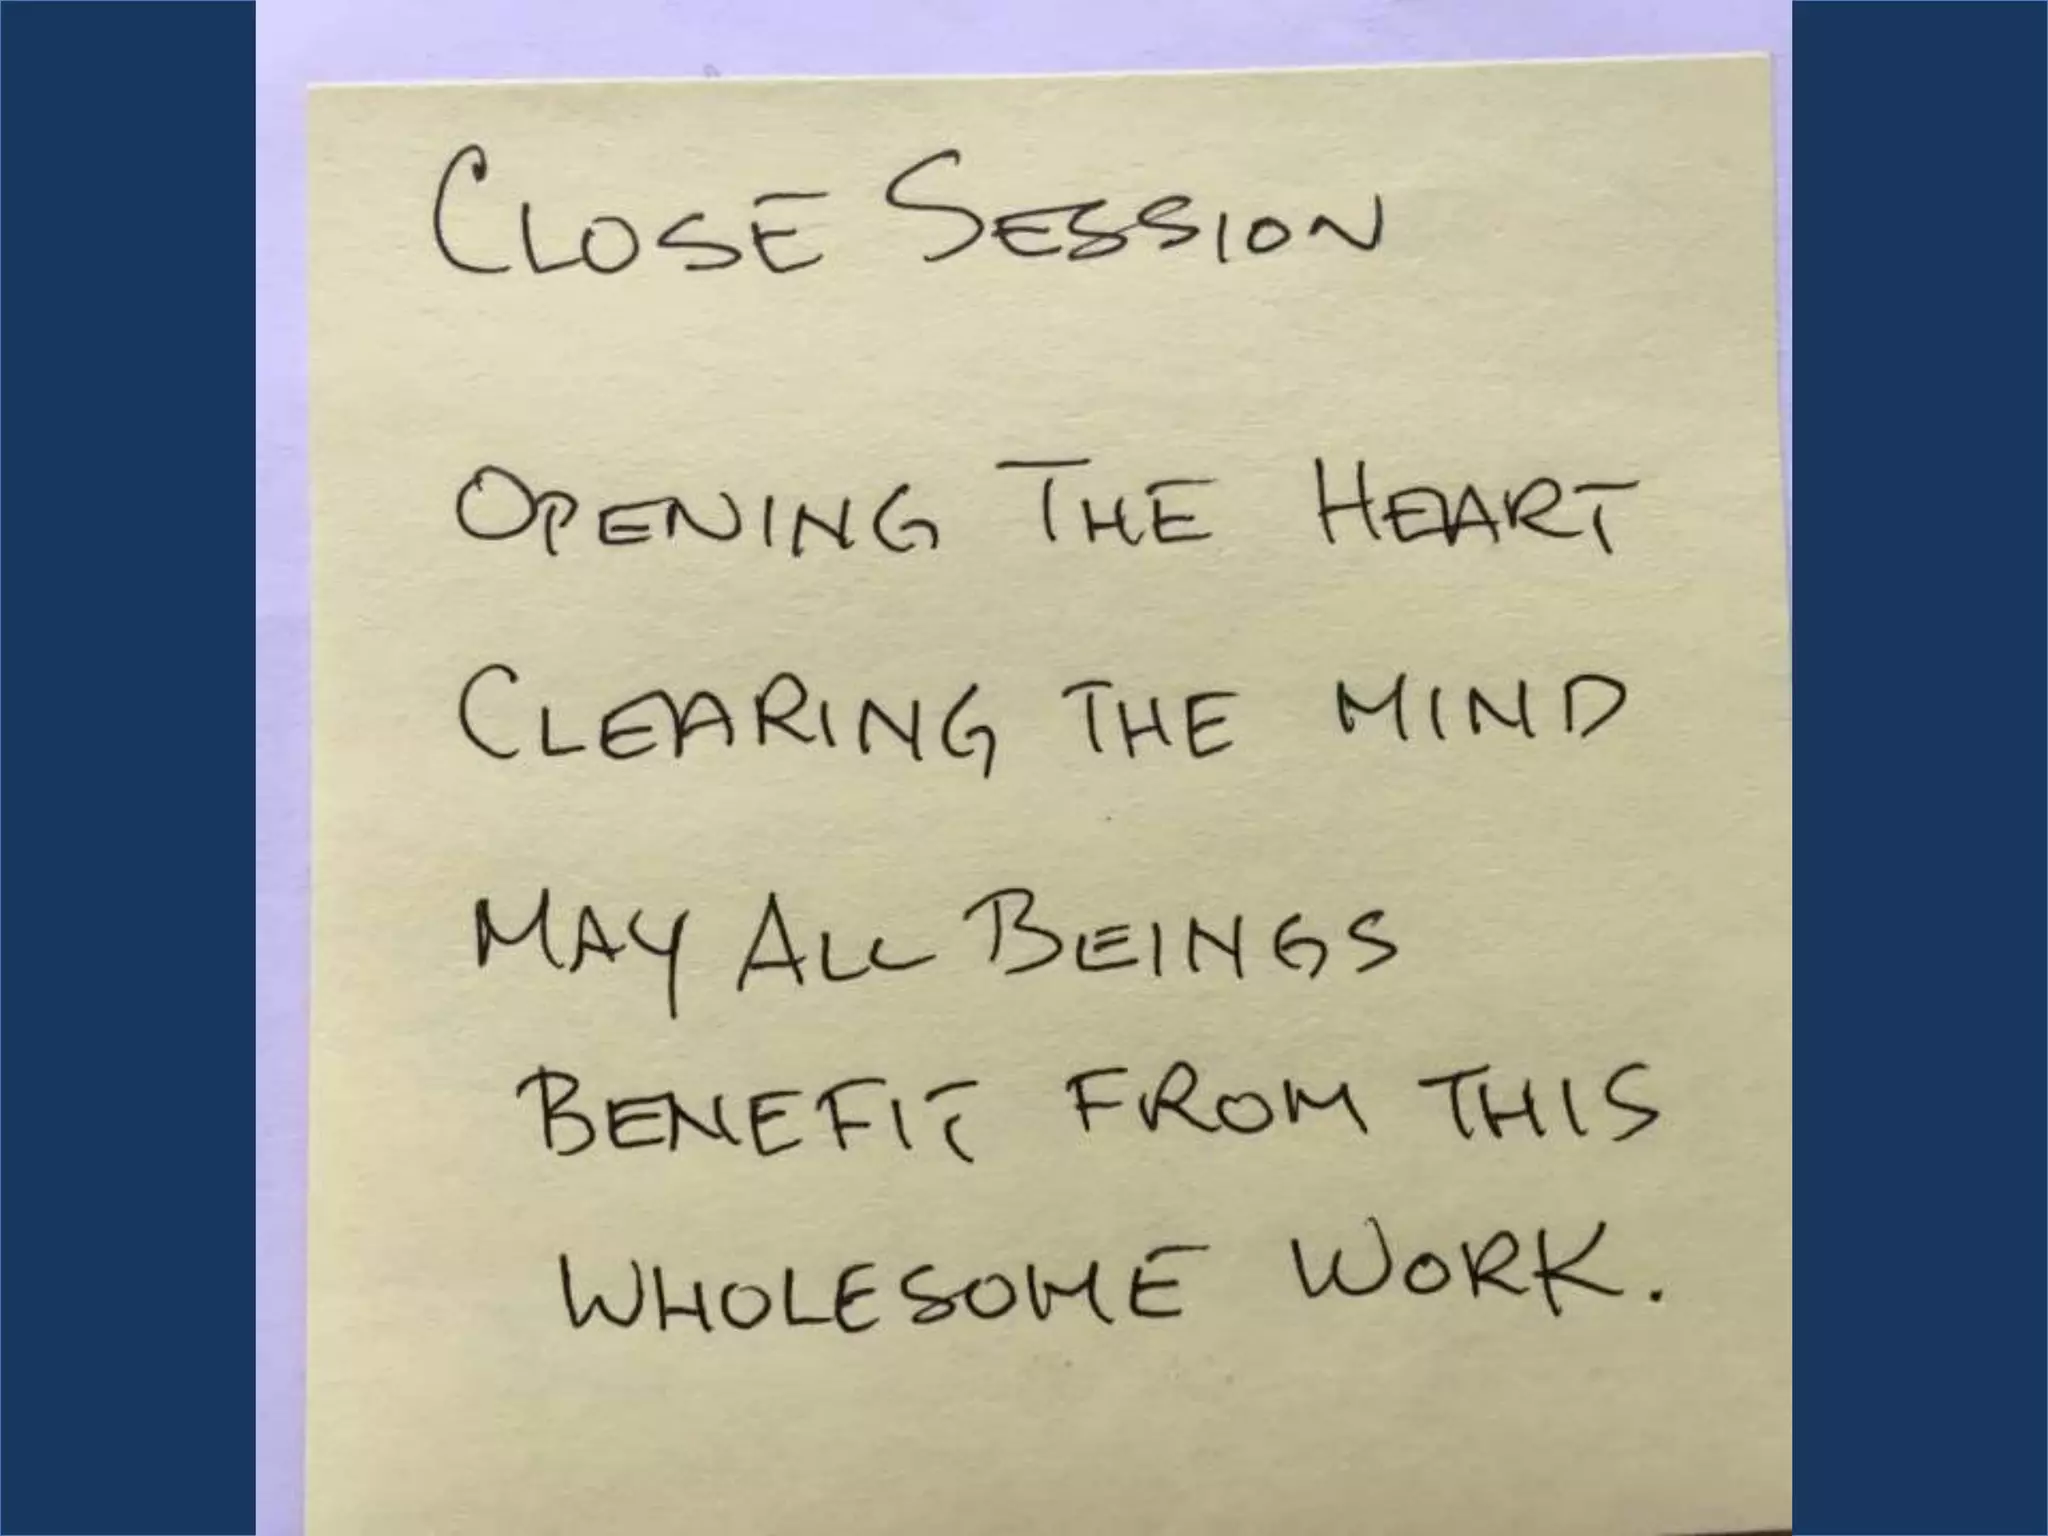 CLOSE SESSION
OPENING THE HEART
CLEARING THE MIND
MAY ALL BEINGS
BENEFIT FROM THIS
WHOLESOME WORK.